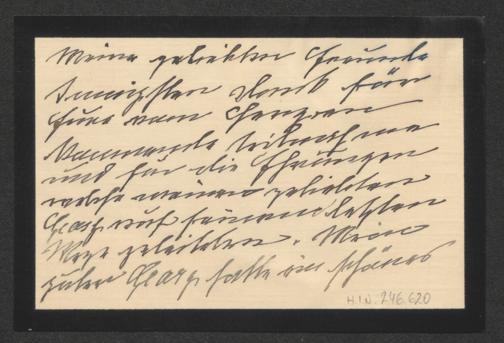 Meine geliebten Freunde
Innigsten Dank für
Eure vom Herzen
kommende Teilnahme
und für die Ehrungen
welche meinen geliebten
Georg auf seinem letzten
Wege geleiteten. Mein
guter Georg hatte ein schönes
H.I.N. 246.620